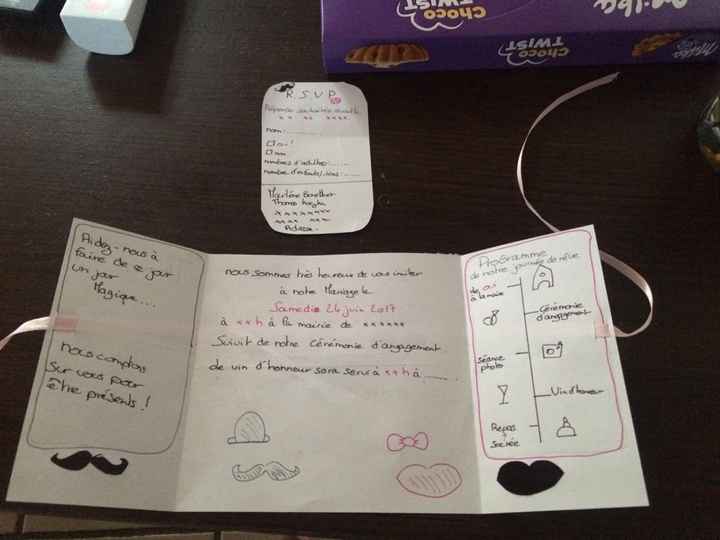 Choco
TWIST
Milka
Choco
TWIST
R.S.V.P
Réponse souhaitée avant le
** ** ****
nom: ........
oui!
non
nombres d'adultes: ......
nombre d'enfants/
Marlène
Thomas
*********
**** ***
Aidez-nous à
faire de ce jour
un jour
Magique...
nous comptons
sur vous pour
être présents!
nous sommes très heureux de vous inviter
à notre Mariage le
Samedi 24 juin 2017
à **h à la mairie de ******
Suivit de notre Cérémonie d'engagement
de vin d'honneur sera servi à **h à ........
Programme
de notre journée de rêve
de oui
à la mairie
Cérémonie
d'engagement
Séance
photo
Vin d'honneur
Repas
Soirée